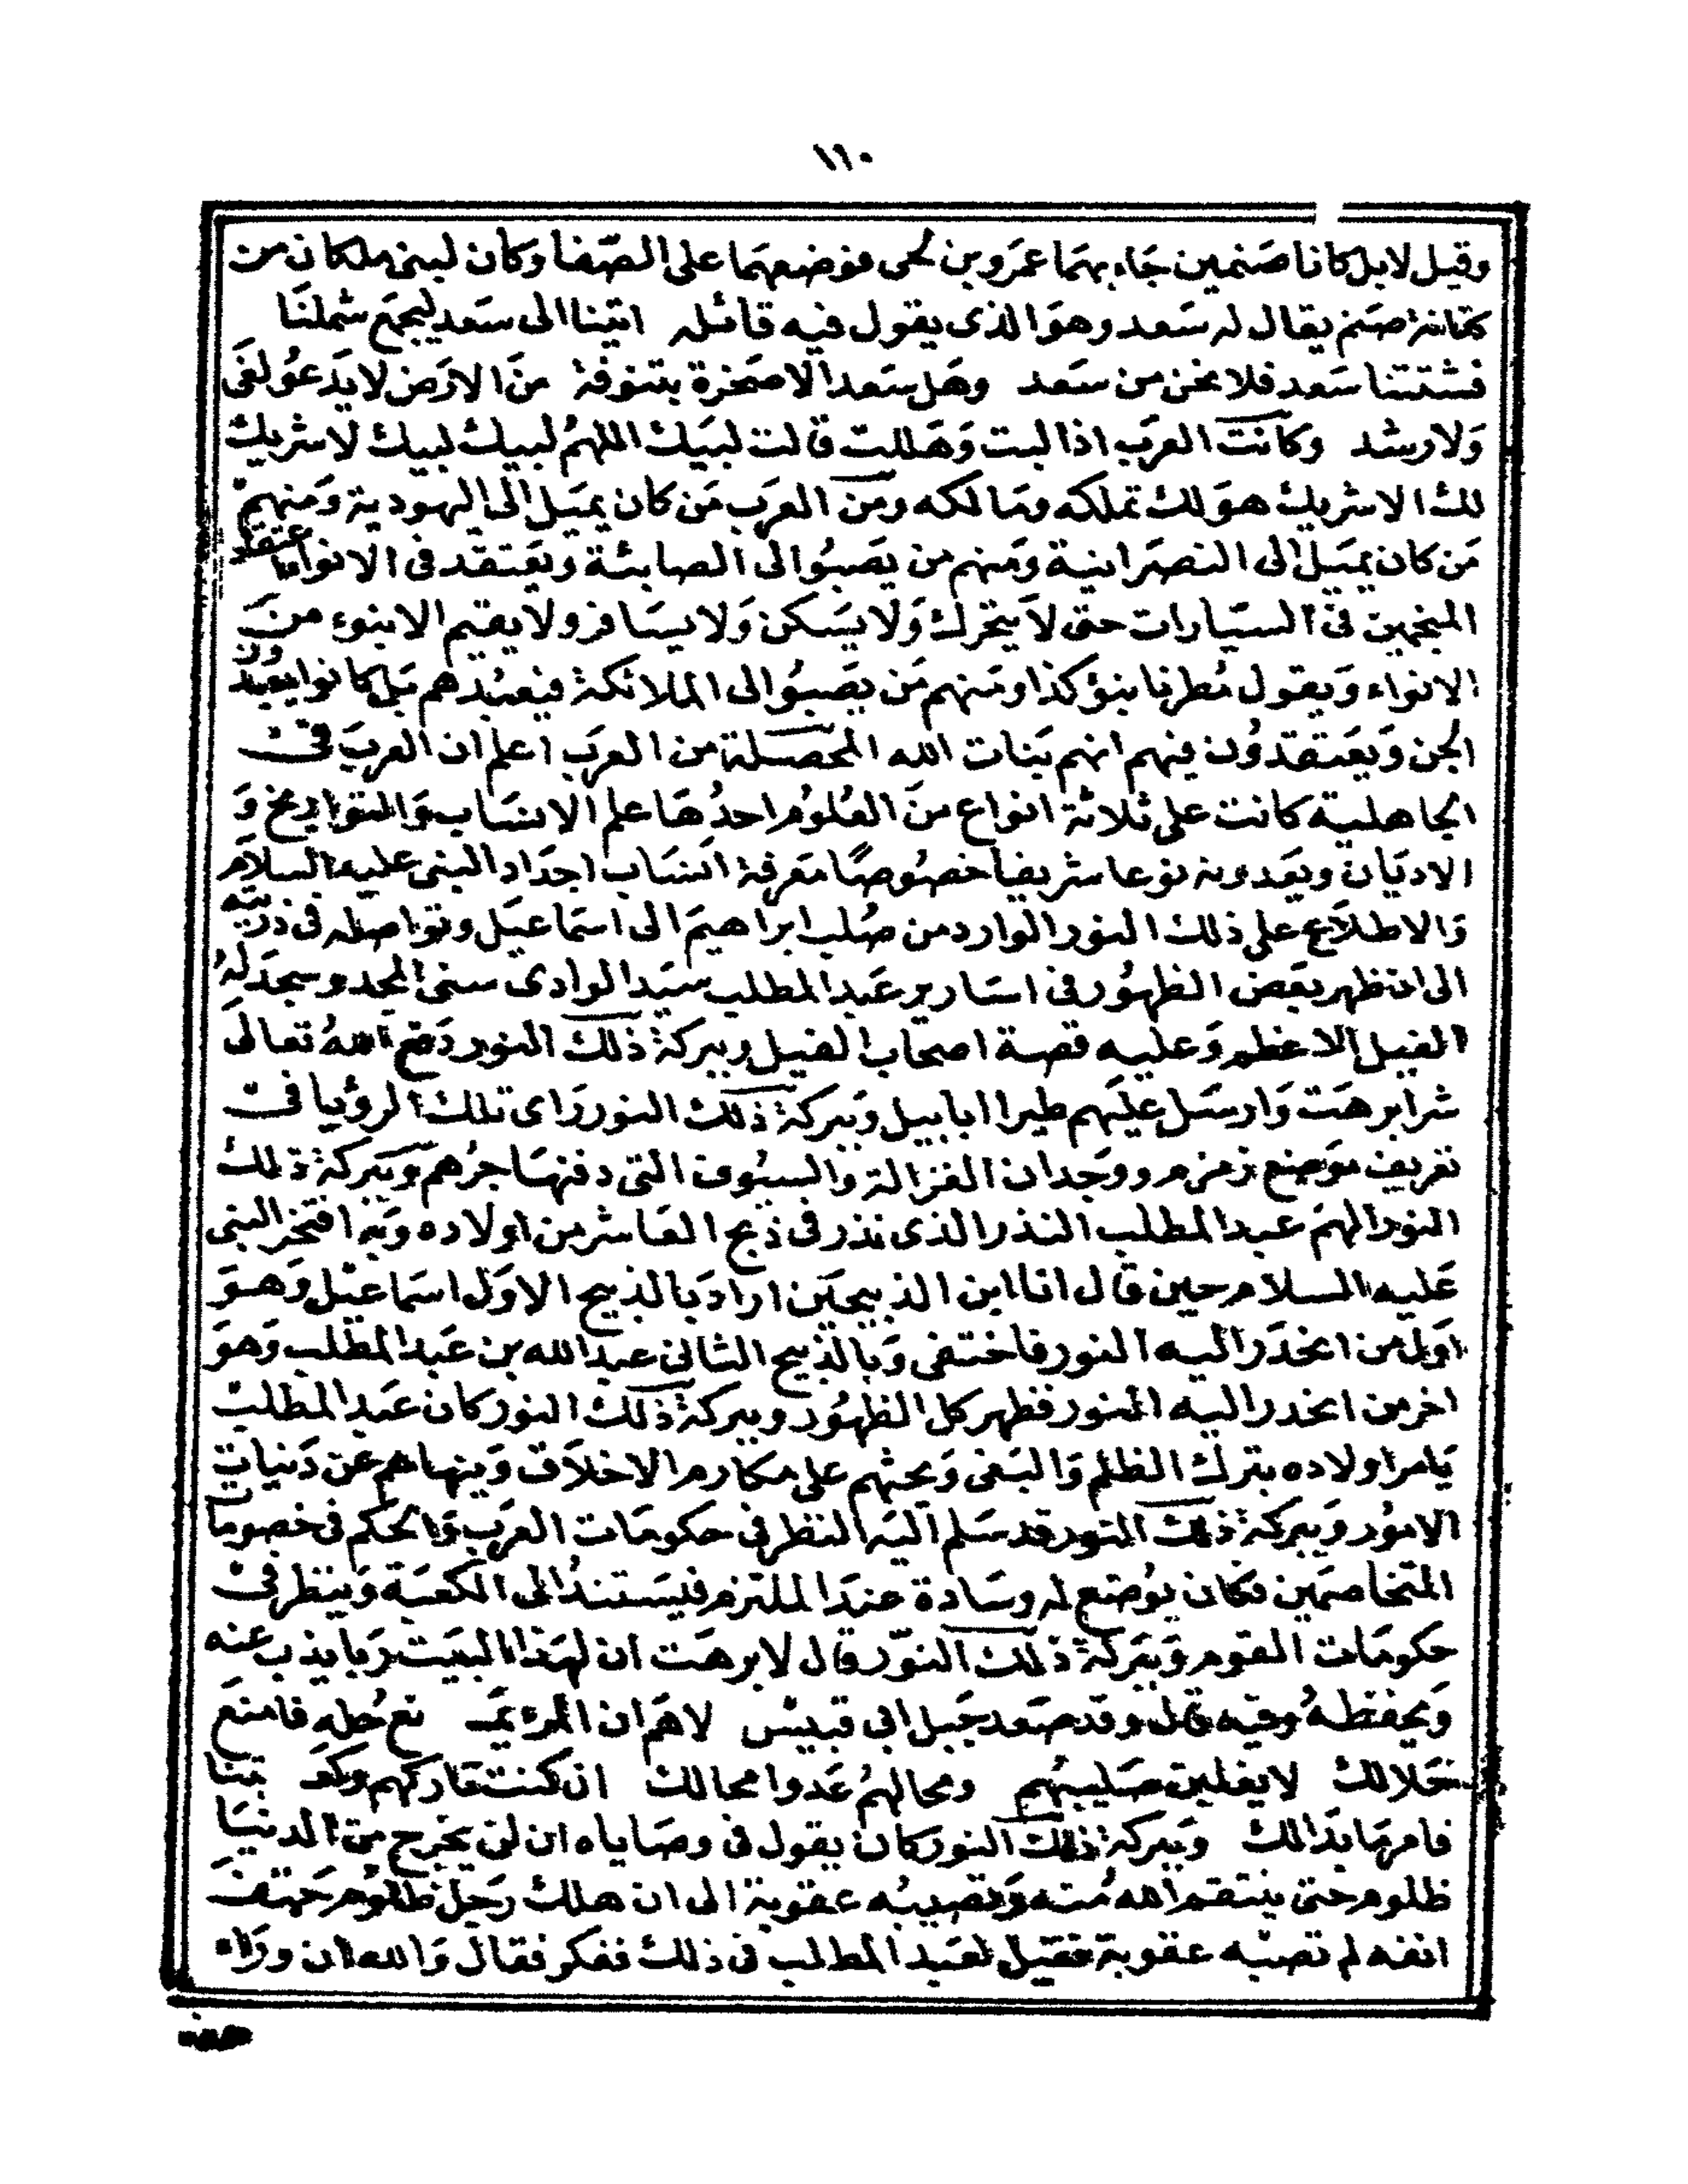 ١١٠
وقيل لابل كانا صنمين جاء بهما عمرو بن لحى فوضعهما على الصفا وكان لبنى ملكان من
كنانة صنم يقال له سعد وهو الذى يقول فيه قائله اتينا الى سعد ليجمع شملنا
فشتتنا سعد فلا نحن من سعد وهل سعد الا صخرة بتنوفة من الارض لا يدعو لغى
ولا رشد وكانت العرب اذا لبت وهللت قالت لبيك اللهم لبيك لبيك لا شريك
لك الا شريك هو لك تملكه وما لكه ومن العرب من كان يميل الى اليهودية ومنهم
من كان يميل الى النصرانية ومنهم من يصبوا الى الصابئة ويعتقد فى الانوا اعتقاد
المنجمين فى السيارات حتى لا يتحرك ولا يسكن ولا يسافر ولا يقيم الا بنوء من
الانواء ويقول مطرنا بنؤ كذا ومنهم من يصبوا الى الملائكة فيعبدهم بل كانوا يعبدون
الجن ويعتقدون فيهم انهم بنات الله المحصلة من العرب اعلم ان العرب فى
الجاهلية كانت على ثلاثة انواع من العلوم احدها علم الانساب والتواريخ و
الاديان ويعدونه نوعا شريفا خصوصا معرفة انساب اجداد النبى عليه السلام
والاطلاع على ذلك النور الوارد من صلب ابراهيم الى اسماعيل وتواصله فى ذريته
الى ان ظهر بعض الظهور فى اسارير عبد المطلب سيد الوادى سنى المجد وسجد له
الفيل الاعظم وعليه قصة اصحاب الفيل وببركة ذلك النور دفع الله تعالى
شر ابرهت وارسل عليهم طيرا ابابيل وببركة ذلك النور راى تلك الرؤيا فى
تعريف موضع زمزم ووجدان الغزالة والسيوف التى دفنها جرهم وببركة ذلك
النور الهم عبد المطلب النذر الذى نذر فى ذبح العاشر من اولاده وبه افتخر النبى
عليه السلام حين قال انا ابن الذبيحين اراد بالذبيح الاول اسماعيل وهو
اول من انحدر اليه النور فاختفى وبالذبيح الثانى عبد الله بن عبد المطلب وهو
اخر من انحدر اليه النور فظهر كل الظهور وببركة ذلك النور كان عبد المطلب
يامر اولاده بترك الظلم والبغى ويحثهم على مكارم الاخلاق وينهاهم عن دنيات
الامور وببركة ذلك النور قد سلم اليه النظر فى حكومات العرب والحكم فى خصومات
المتخاصمين فكان يوضع له وسادة عند الملتزم فيستند الى الكعبة وينظر فى
حكومات القوم وببركة ذلك النور قال لابرهت ان لهذا البيت ربا يذب عنه
ويحفظه وفيه قال وقد صعد جبل ابى قبيس لاهم ان المرء يمـ نع حله فامنع
حلالك لا يغلبن صليبهم ومحالهم عدوا محالك ان كنت تاركهم وكعـ بتنا
فامر ما بدالك وببركة ذلك النور كان يقول فى وصاياه ان لن يخرج من الدنيا
ظلوم حتى ينتقم الله منه وتصيبه عقوبة الى ان هلك رجل ظلوم حتف
انفه لم تصبه عقوبة فقيل لعبد المطلب فى ذلك ففكر فقال والله ان وراء